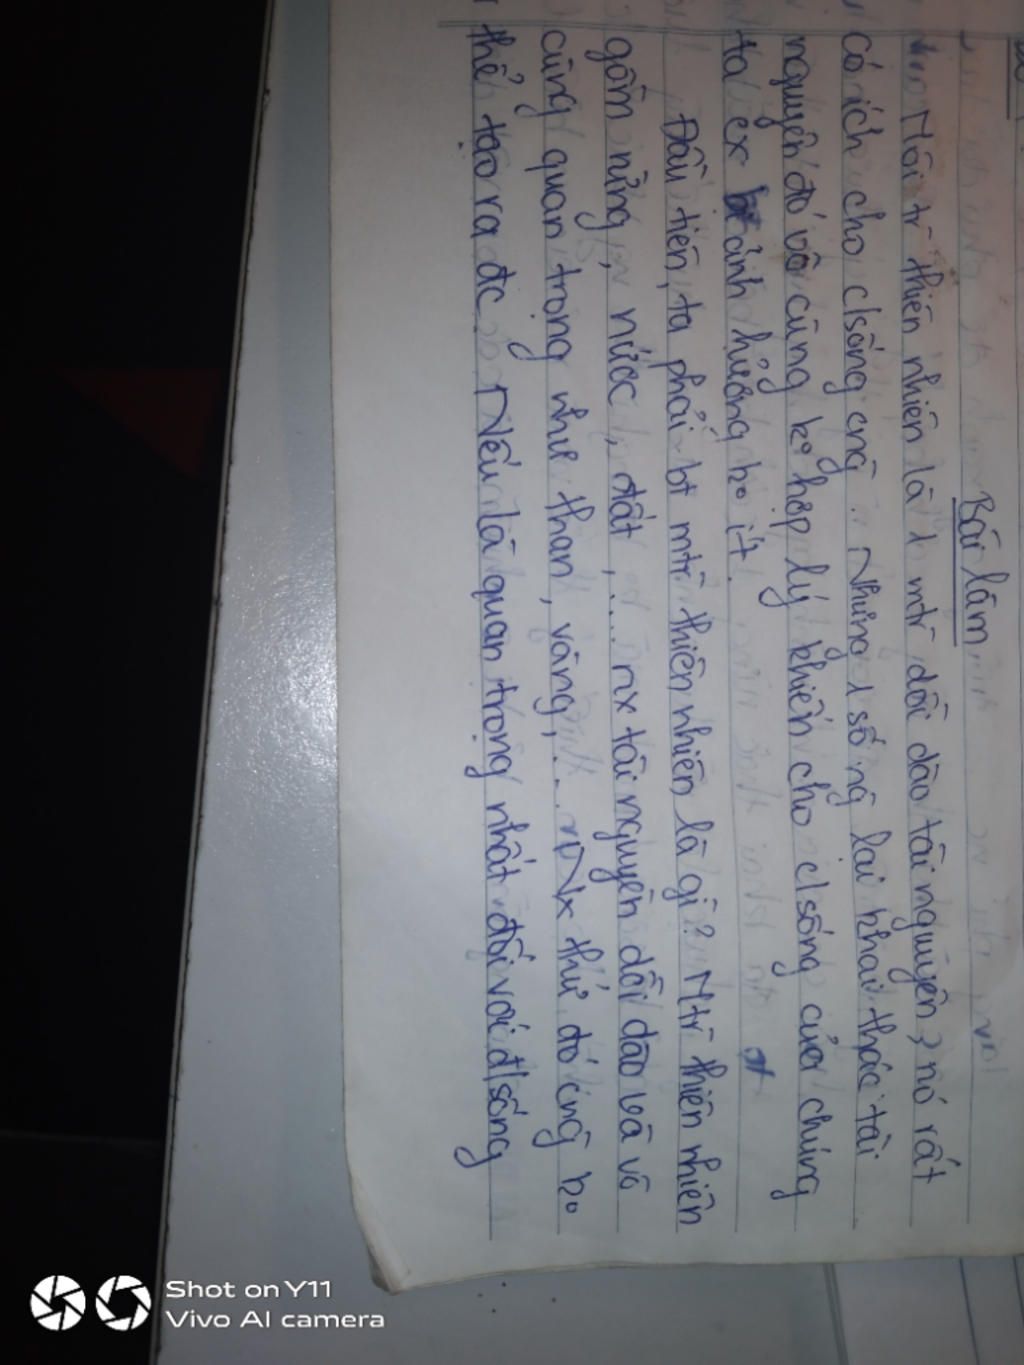 Bài làm
Môi tr thiên nhiên là 1 mtr dồi dào tài nguyên, nó rất
có ích cho c/sống cng. Nhưng 1 số ng lại khai thác tài
nguyên đó vô cùng ko hợp lý khiến cho c/sống của chúng
ta ex ảnh hưởng ko ít.
Đầu tiên, ta phải bt mtr thiên nhiên là gì? Mtr thiên nhiên
gồm rừng, nước, đất,... nx tài nguyên dồi dào và vô
cùng quan trọng như than, vàng,... Nx thứ đó cng ko
thể tạo ra đc. Nếu là quan trọng nhất đối với đ/sống
Shot on Y11
Vivo AI camera